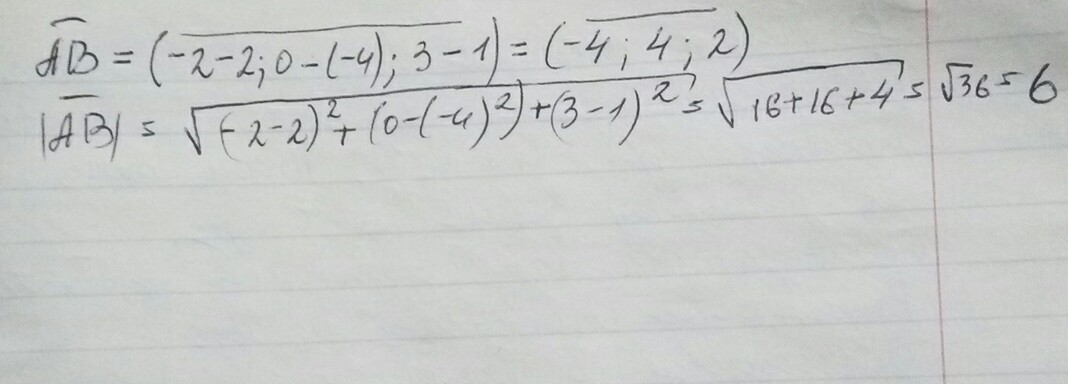 AB = (-2-2; 0-(-4); 3-1) = (-4; 4; 2)
|AB| = √(-2-2)²+(0-(-4)²)+(3-1)² = √16+16+4 = √36 = 6